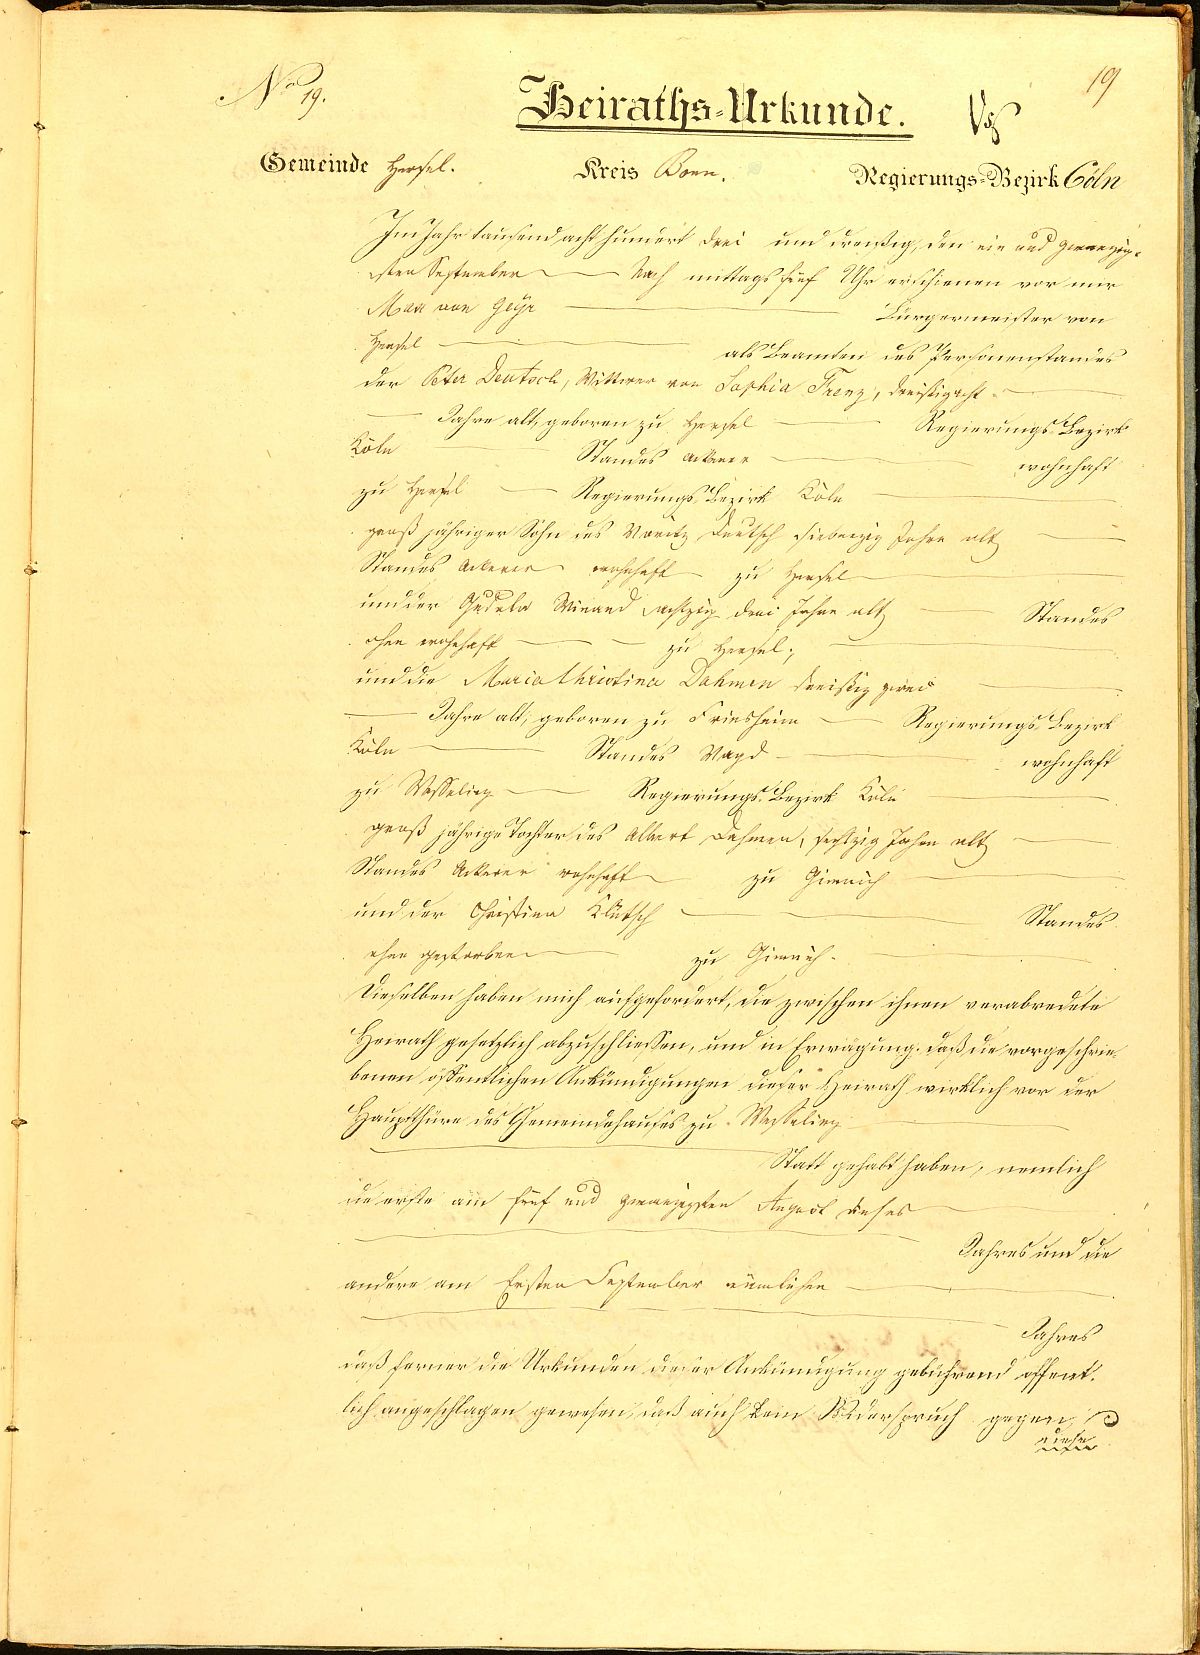 No 19.
19
Heiraths-Urkunde.
Gemeinde Hersel. Kreis Bonn. Regierungs-Bezirk Cöln
Im Jahr tausend acht hundert drei und dreißig, den ein und zwanzig-
sten September Nach mittags fünf Uhr erschienen vor mir
Max von Geyr Bürgermeister von
Hersel als Beamten des Personenstandes
der Peter Deutsch, Wittwer von Sophia Frenz, dreißigacht
Jahre alt, geboren zu Hersel Regierungs-Bezirk
Köln Standes Ackerer wohnhaft
zu Hersel Regierungs-Bezirk Köln
groß jähriger Sohn des Moritz Deutsch siebenzig Jahre alt
Standes Ackerer wohnhaft zu Hersel
und der Gudula Winand sechszig drei Jahre alt Standes
ohne wohnhaft zu Hersel;
und die Maria Christina Dahmen dreißig zwei
Jahre alt, geboren zu Friesheim Regierungs-Bezirk
Köln Standes Magd wohnhaft
zu Wesseling Regierungs-Bezirk Köln
groß jährige Tochter des Albert Dahmen, sechszig Jahre alt
Standes Ackerer wohnhaft zu Gimnich
und der Christina Klütsch Standes
ohne gestorben zu Gimnich.
Dieselben haben mich aufgefordert, die zwischen ihnen verabredete
Heirath gesetzlich abzuschliessen, und in Erwägung, daß die vorgeschrie-
benen öffentlichen Ankündigungen dieser Heirath wirklich vor der
Hauptthüre des Gemeindehauses zu Wesseling
Statt gehabt haben, nemlich
die erste am fünf und zwanzigsten August dieses
Jahres und die
andere am Ersten September nämlichen
Jahres
daß ferner die Urkunden dieser Ankündigung gebührend öffent-
lich angeschlagen gewesen, daß auch kein Widerspruch gegen
diese